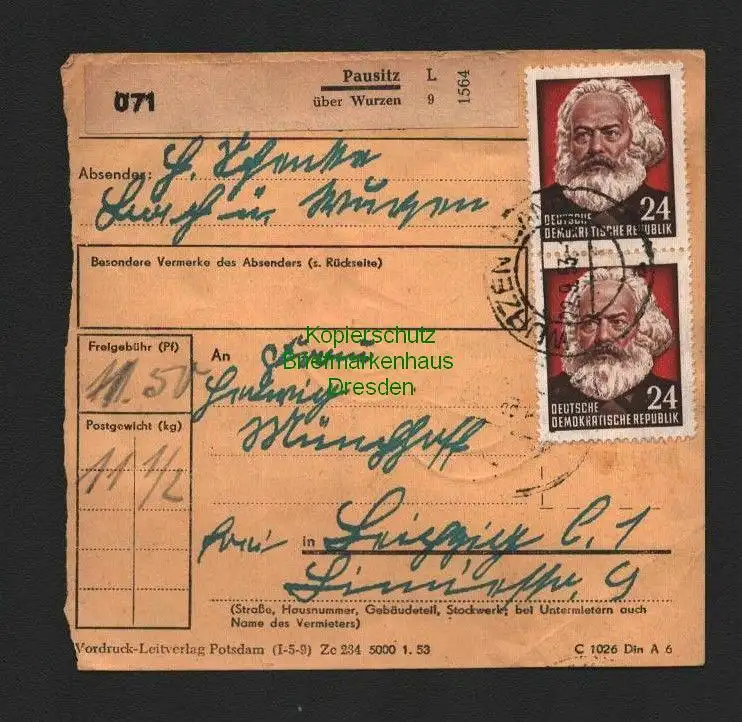 Pausitz
über Wurzen
L
9
1564
071
Absender: H. Schenke
24
DEUTSCHE
DEMOKRATISCHE REPUBLIK
Besondere Vermerke des Absenders (s. Rückseite)
WURZEN
Freigebühr (Pf)
An Frau
Kopierschutz
Briefmarkenhaus
Dresden
Hedwig
24
DEUTSCHE
DEMOKRATISCHE REPUBLIK
Postgewicht (kg)
Münchhoff
11 1/2
in Leipzig C. 1
9
(Straße, Hausnummer, Gebäudeteil, Stockwerk; bei Untermietern auch
Name des Vermieters)
Vordruck-Leitverlag Potsdam (I-5-9) Zc 234 5000 1. 53
C 1026 Din A 6